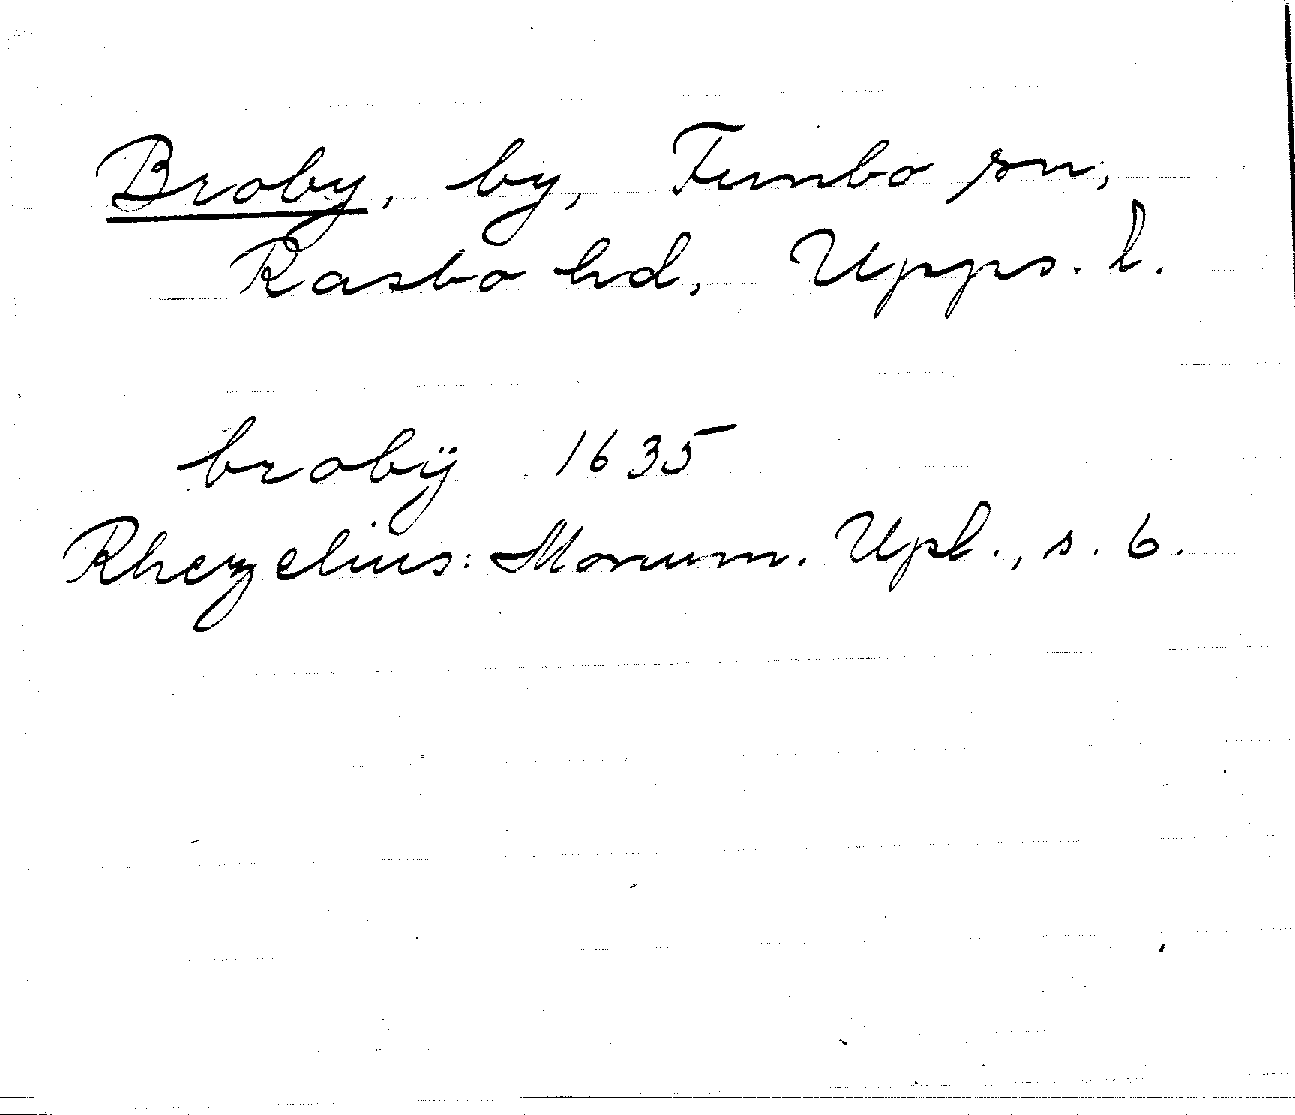 Broby, by, Funbo sn,
Rasbo hd, Upps. l.
brobÿ 1635
Rhezelius: Monum. Upl., s. 6.